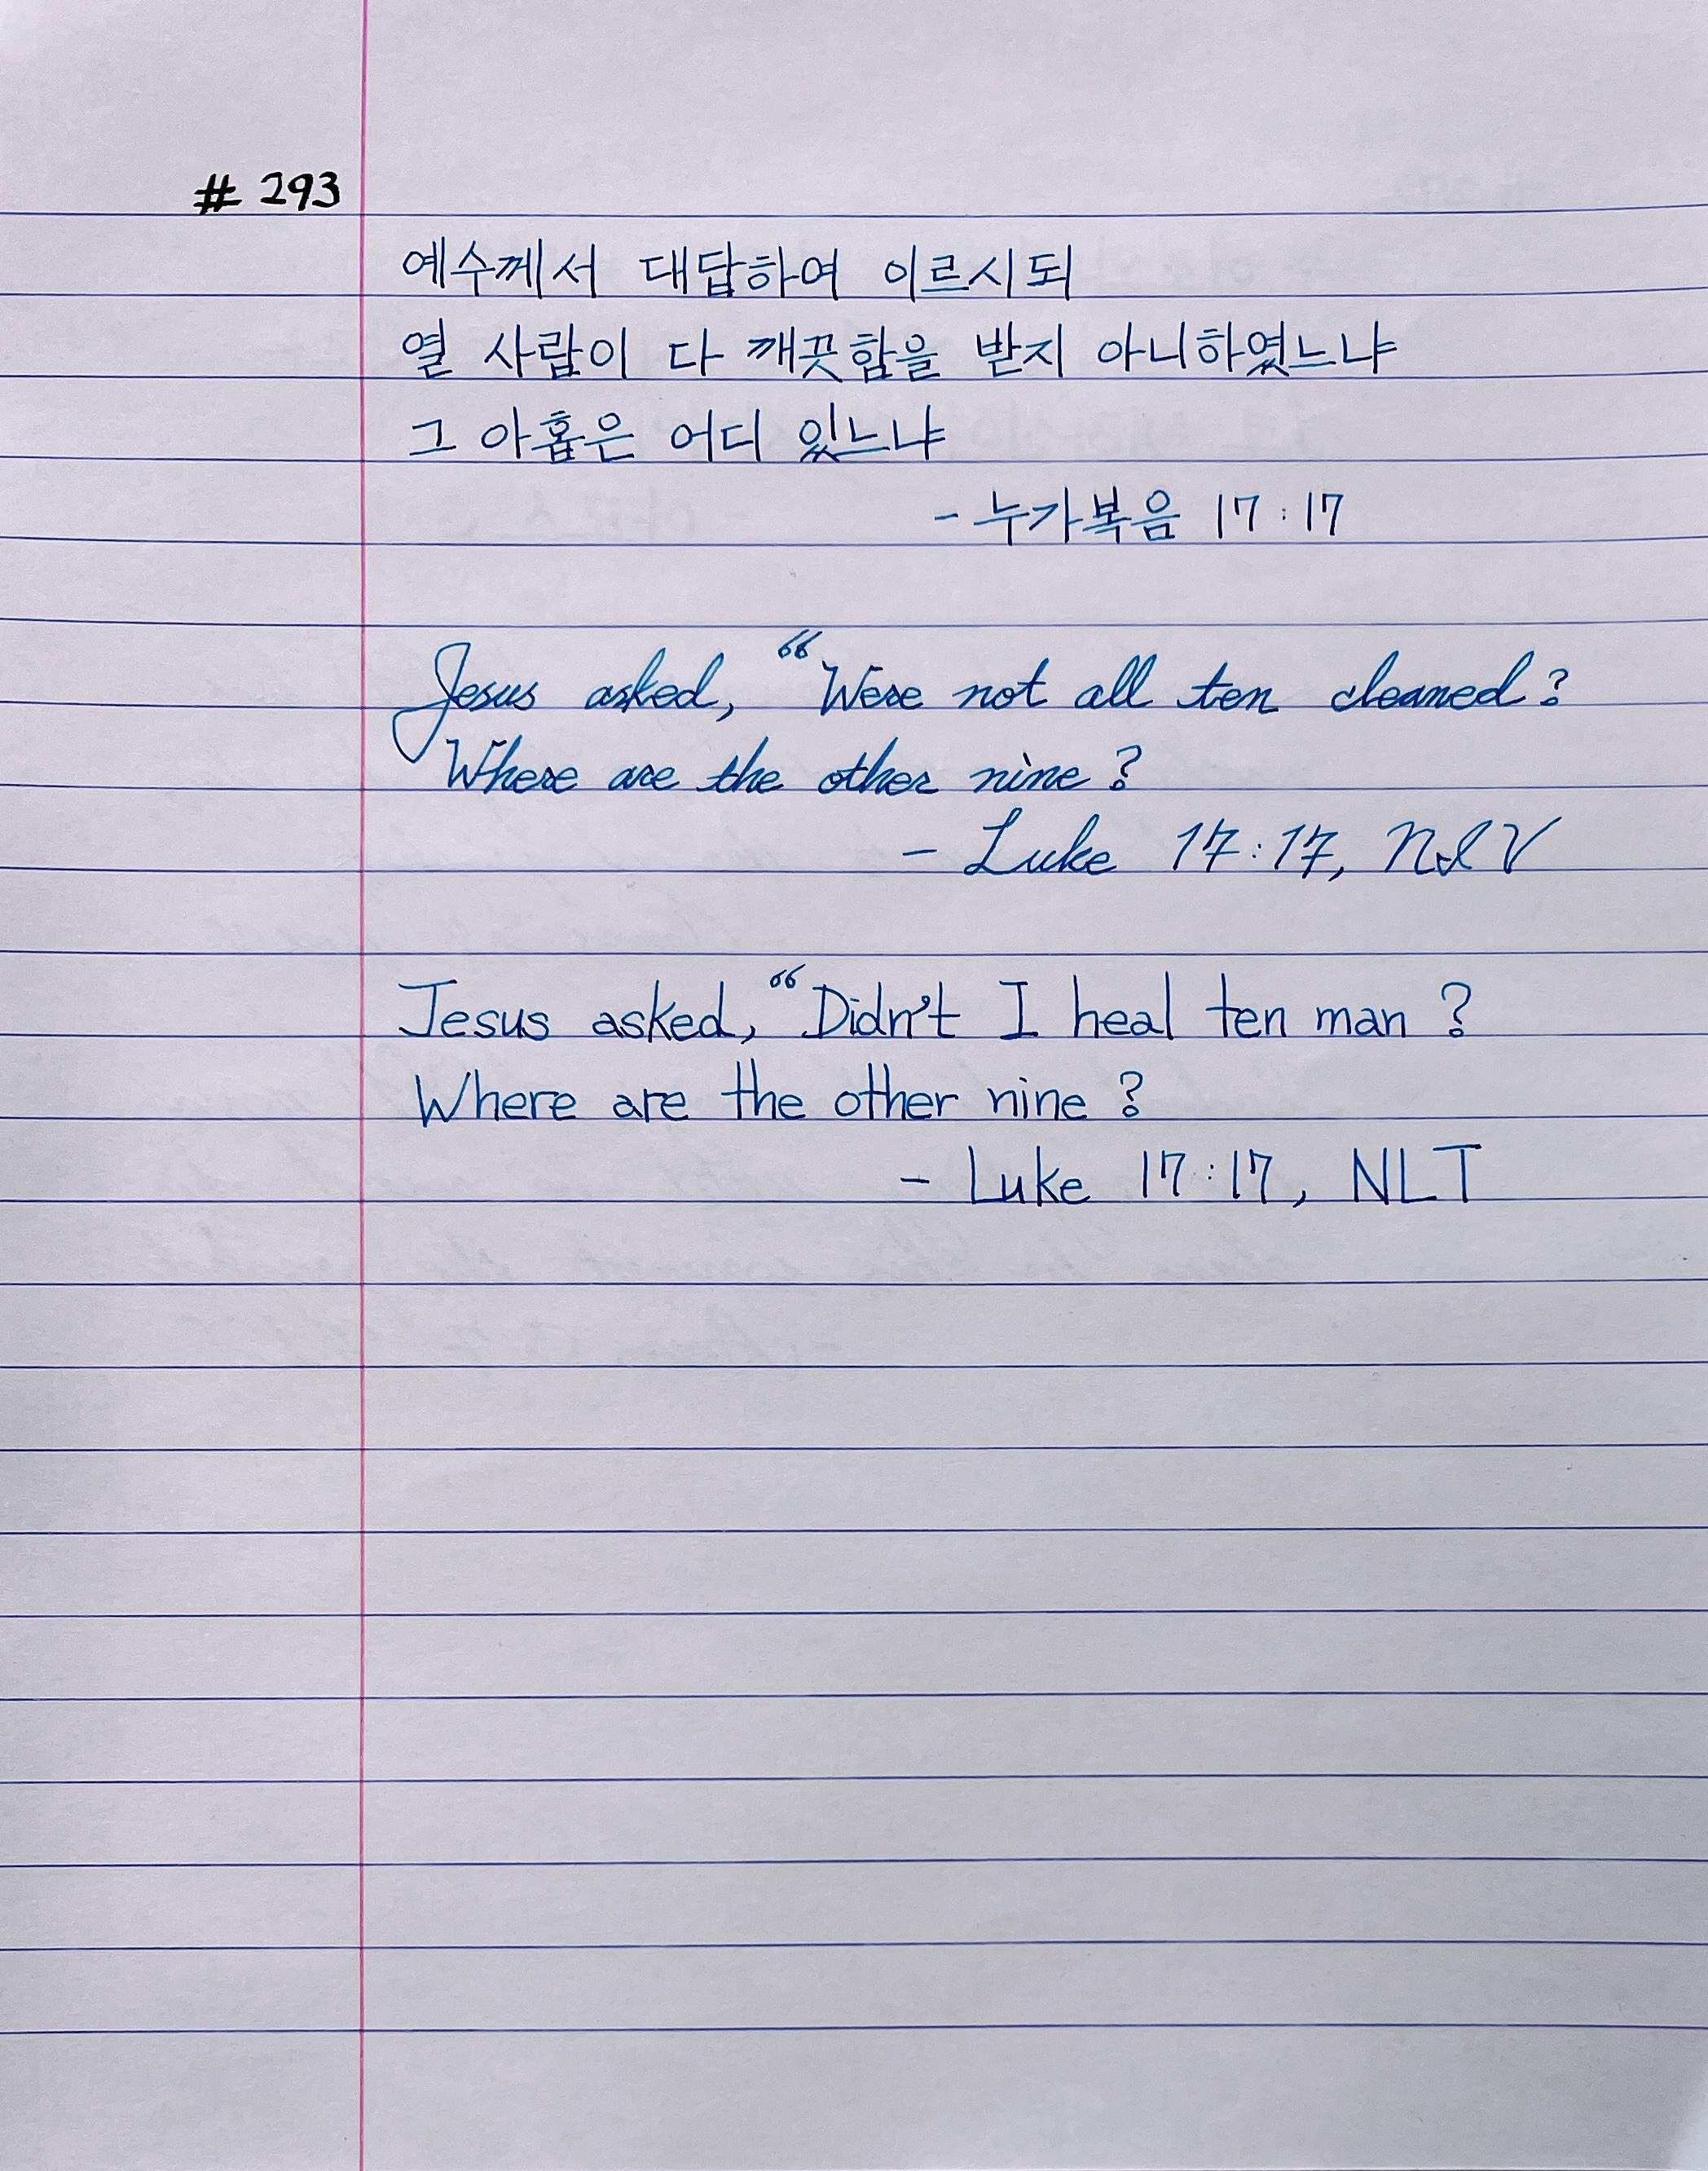 # 293
예수께서 대답하여 이르시되
열 사람이 다 깨끗함을 받지 아니하였느냐
그 아홉은 어디 있느냐
- 누가복음 17:17
Jesus asked, “Were not all ten cleaned?
Where are the other nine?
- Luke 17:17, NIV
Jesus asked, “Didn't I heal ten man?
Where are the other nine?
- Luke 17:17, NLT